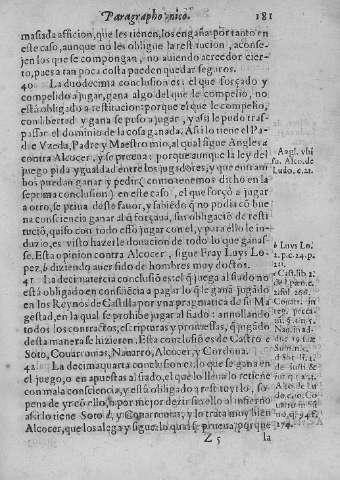 Paragrapho vnico. 181
masiada afficion, que les tienen, los engaña: por tanto en
este caso, aunque no les obligue la restitucion, aconse-
jen los que se compongan, no auiendo acreedor cier-
to, pues a tan poca costa pueden quedar seguros.
40 La duodecima conclusion es: el que forçado y
compelido a jugar, gana algo del que le compelio, no
está obligado a restitucion: porque el que le compelio,
con libertad y gana se puso a jugar, y assi le pudo tras-
passar el dominio de la cosa ganada. Assi lo tiene el Pa-
dre Vzeda, Padre y Maestro mio, al qual sigue Angles a
contra Alcocer, y se prueua: porque aunque la ley del
juego pida ygualdad entre los jugadores, y que entram-
bos puedan ganar y pedir (como tenemos dicho en la
septima conclusion) en este caso, el que forçò a jugar
a otro, se priua deste fauor, y sabiedo q̃ no podia cõ bue
na consciencia ganar al q̃ forçaua, sin obligaciõ de resti-
tuciõ, quiso con todo esso jugar con el, y para ello le in-
duzio, es visto hazelle donacion de todo lo que le ga-
nasse. Esta opinion contra Alcocer, sigue Fray Luys Lo-
pez, b diziendo auer sido de hombres muy doctos.
41 La decimatercia conclusiõ es: el q̃ juega al fiado no
está obligado en consciẽcia a pagar lo que le ganã jugado
en los Reynos de Castilla por vna pragmatica de su Ma
gestad, en la qual se prohibe jugar al fiado: annollando
todos los contractos, escripturas y promessas, q̃ jugãdo
desta manera se hizieren. Esta conclusiõ es de Castro c
Soto, Couarruuias, Nauarro, Alcocer, y Cordoua.
42 La decimaquarta conclusion es, lo que se gana en
el juego, o en apuestas al fiado, el que lo lleua lo retiene
con mala consciencia, y està obligado a restituyrlo, so
pena de yr cõ ello, o por mejor dezir sin ello al infierno
assi lo tiene Soto d, y Couarruuias, y lo trata muy bien
Alcocer, que los alega y sigue: lo qual se prueua, porque
Z 5 la
a Agl. vbi
su. Alco. de
Ludo. c. 21.
b Luys Lo.
2. p. c. 24. p.
21.
c Cast. lib. 2.